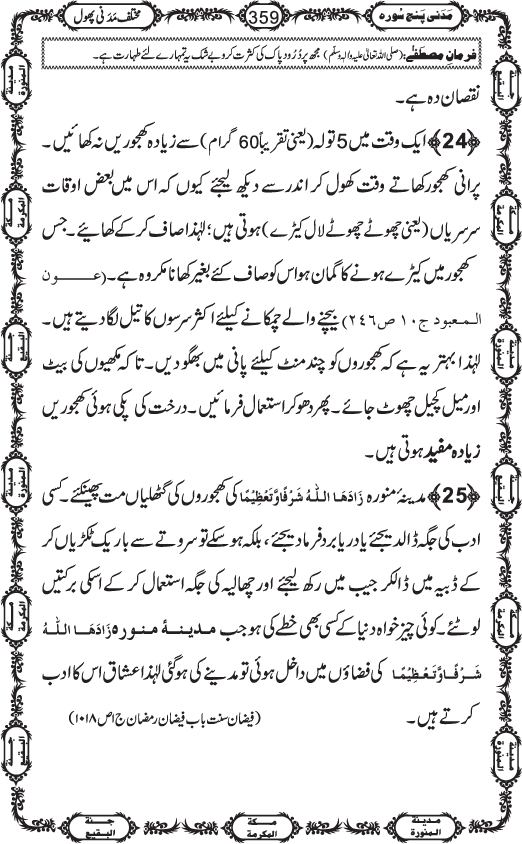 مَدَنی پَنج سُورہ 359 مختلف مَدَنی پھول
فرمانِ مصطَفٰے : (صلی اللہ تعالیٰ علیہ والہٖ وسلّم) مجھ پر دُرُود پاک کی کثرت کرو بے شک یہ تمہارے لئے طہارت ہے ۔
نقصان دہ ہے ۔
﴿24﴾ ایک وقت میں 5 تولہ (یعنی تقریباً 60 گرام) سے زیادہ کھجوریں نہ کھائیں ۔
پرانی کھجور کھاتے وقت کھول کر اندر سے دیکھ لیجئے کیوں کہ اس میں بعض اوقات
سرسریاں (یعنی چھوٹے چھوٹے لال کیڑے) ہوتی ہیں ؛ لہٰذا صاف کر کے کھائیے ۔ جس
کھجور میں کیڑے ہونے کا گمان ہو اس کو صاف کئے بغیر کھانا مکروہ ہے ۔ (عــــون
المعبود ج ۱۰ ص ۲٤٦) بیچنے والے چمکانے کیلئے اکثر سرسوں کا تیل لگا دیتے ہیں ۔
لہٰذا بہتر یہ ہے کہ کھجوروں کو چند منٹ کیلئے پانی میں بھگو دیں ۔ تاکہ مکھیوں کی بیٹ
اور میل کچیل چھوٹ جائے ۔ پھر دھو کر استعمال فرمائیں ۔ درخت کی پکی ہوئی کھجوریں
زیادہ مفید ہوتی ہیں ۔
﴿25﴾ مدینۂ منورہ زَادَهَا اللهُ شَرَفًا وَّتَعْظِيْمًا کی کھجوروں کی گٹھلیاں مت پھینکئے ۔ کسی
ادب کی جگہ ڈالدیجئے یا دریا برد فرما دیجئے ، بلکہ ہو سکے تو سروتے سے باریک ٹکڑیاں کر
کے ڈبیہ میں ڈالکر جیب میں رکھ لیجئے اور چھالیہ کی جگہ استعمال کر کے اسکی برکتیں
لوٹئے ۔ کوئی چیز خواہ دنیا کے کسی بھی خطے کی ہو جب مدینۂ منورہ زَادَهَا اللهُ
شَرَفًا وَّتَعْظِيْمًا کی فضاؤں میں داخل ہوئی تو مدینے کی ہو گئی لہٰذا عشاق اس کا ادب
کرتے ہیں ۔ (فیضان سنت باب فیضان رمضان ج اص ۱۰۱۸)
مدینة المنورة
مكة المكرمة
جنة البقيع
مدینة المنورة
مكة المكرمة
جنة البقيع
جنة البقيع
مكة المكرمة
مدینة المنورة
جنة البقيع
مكة المكرمة
مدینة المنورة
جنة البقيع مكة المكرمة مدینة المنورة